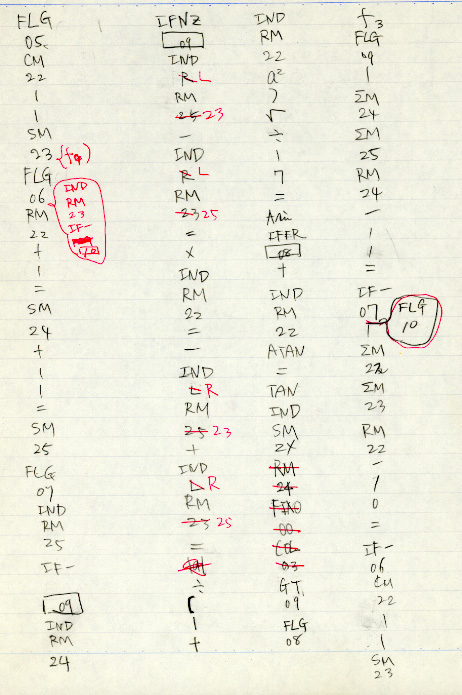 FLG
05
CM
22
1
1
SM
23 (f9)
FLG
06
RM
22
+
1
=
SM
24
+
1
1
=
SM
25
FLG
07
IND
RM
25
IF-
09
IND
RM
24
IND
RM
23
IF-
10
IFNZ
09
IND
R L
RM
25 23
-
IND
R L
RM
23 25
=
x
IND
RM
22
=
-
IND
L R
RM
25 23
+
IND
L R
RM
25 25
=
÷
(
1
+
IND
RM
22
a²
)
√
÷
1
7
=
IFFR
08
+
IND
RM
22
ATAN
=
TAN
IND
SM
2X
RM
24
00
03
GT
09
FLG
08
f3
FLG
09
1
ΣM
24
ΣM
25
RM
24
-
1
1
=
IF-
07
1
ΣM
22
ΣM
23
RM
22
-
1
0
=
IF-
06
CM
22
1
1
SM
23
FLG
10